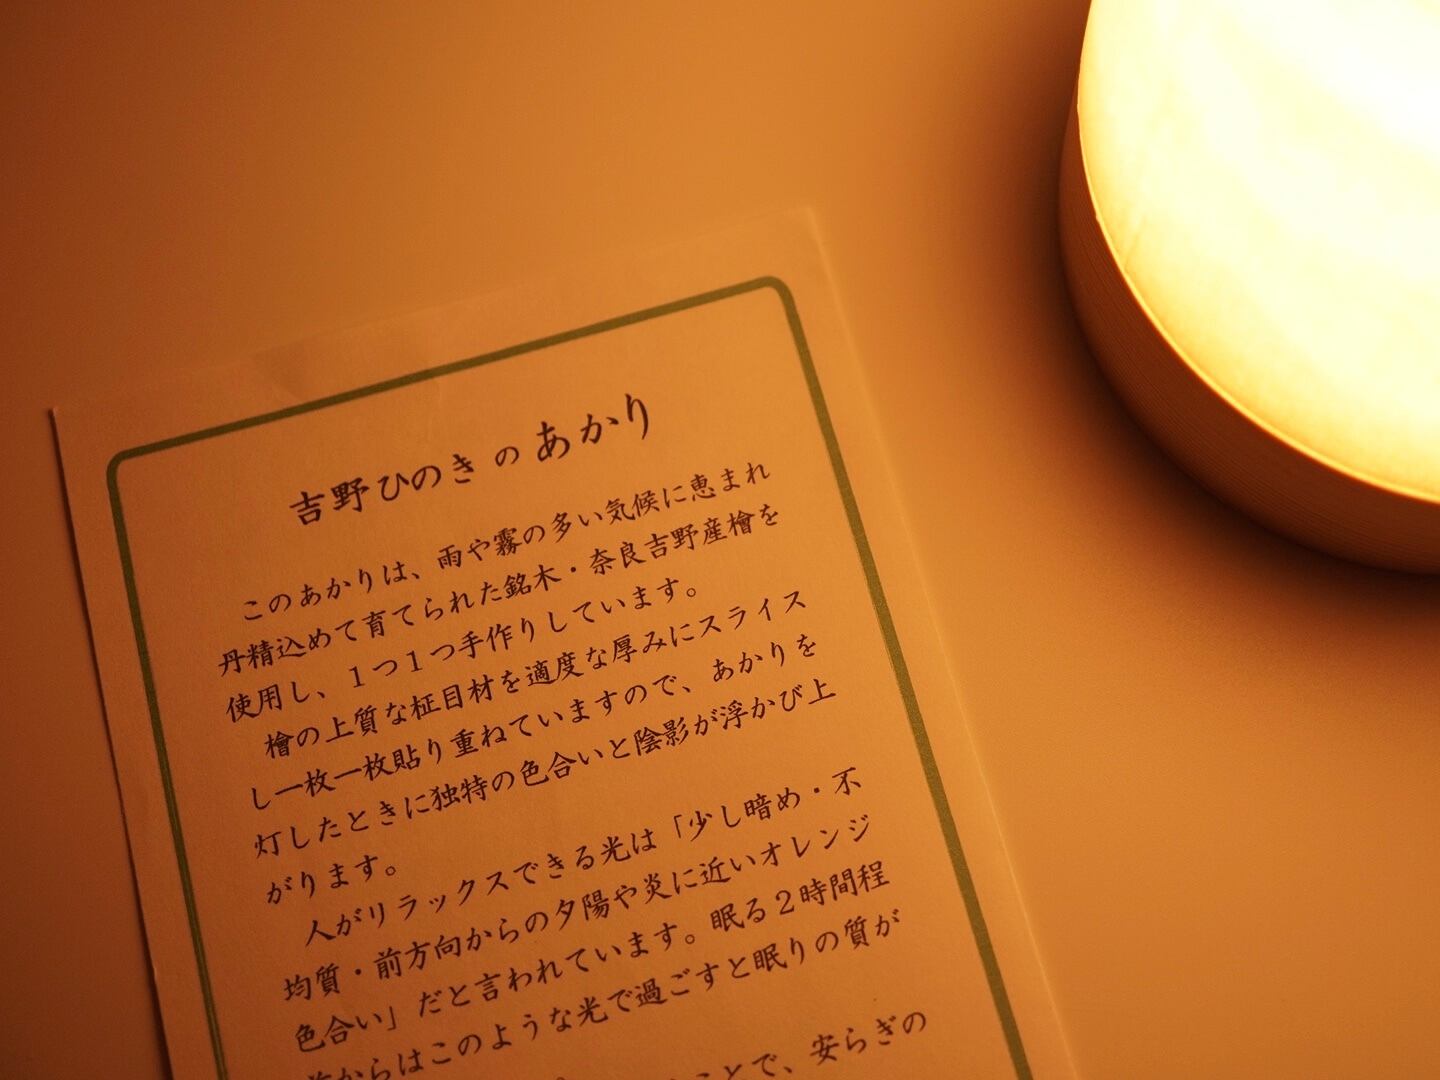 吉野ひのきのあかり
このあかりは、雨や霧の多い気候に恵まれ
丹精込めて育てられた銘木・奈良吉野産檜を
使用し、１つ１つ手作りしています。
檜の上質な柾目材を適度な厚みにスライス
し一枚一枚貼り重ねていますので、あかりを
灯したときに独特の色合いと陰影が浮かび上
がります。
人がリラックスできる光は「少し暗め・不
均質・前方向からの夕陽や炎に近いオレンジ
色合い」だと言われています。眠る２時間程
前からはこのような光で過ごすと眠りの質が
ことで、安らぎの